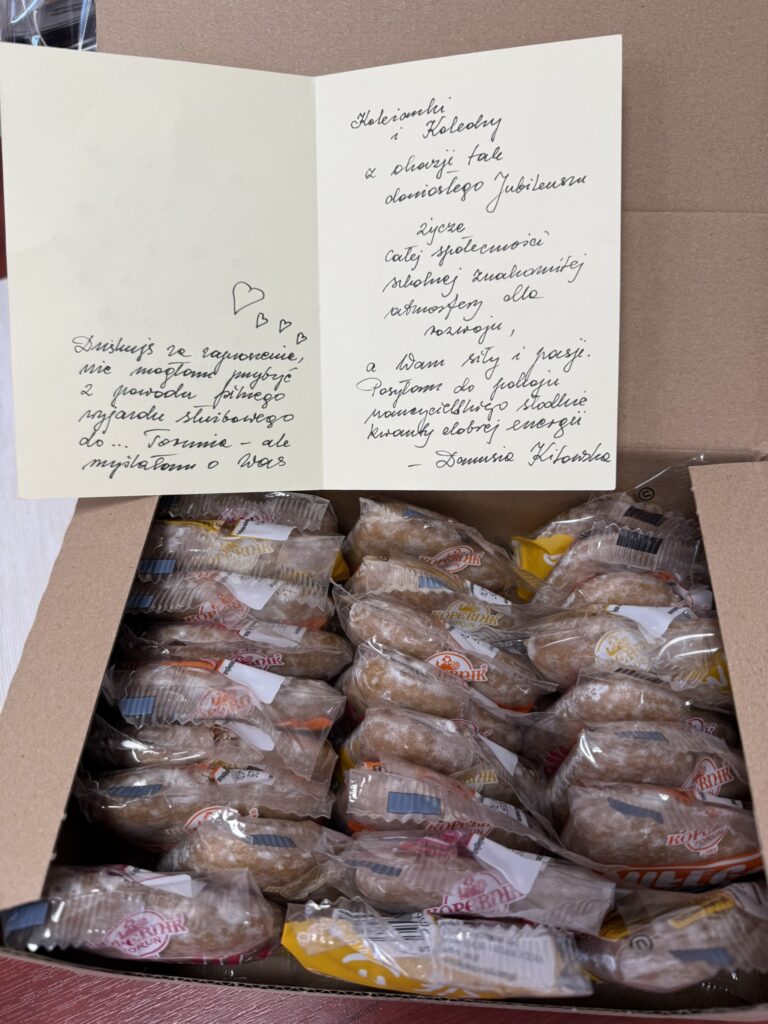 Dziękuję za zaproszenie,
nie mogłam przybyć
z powodu pilnego
wyjazdu służbowego
do... Torunia - ale
myślałam o Was
Koleżanki
i Koledzy
z okazji tak
doniosłego Jubileuszu
życzę
całej społeczności
szkolnej znakomitej
atmosfery dla
rozwoju,
a Wam siły i pasji.
Posyłam do pokoju
nauczycielskiego słodkie
kwanty dobrej energii
- Danusia Kitowska
KOPERNIK
KOPERNIK
KOPERNIK
KOPERNIK
KOPERNIK
TORUŃ